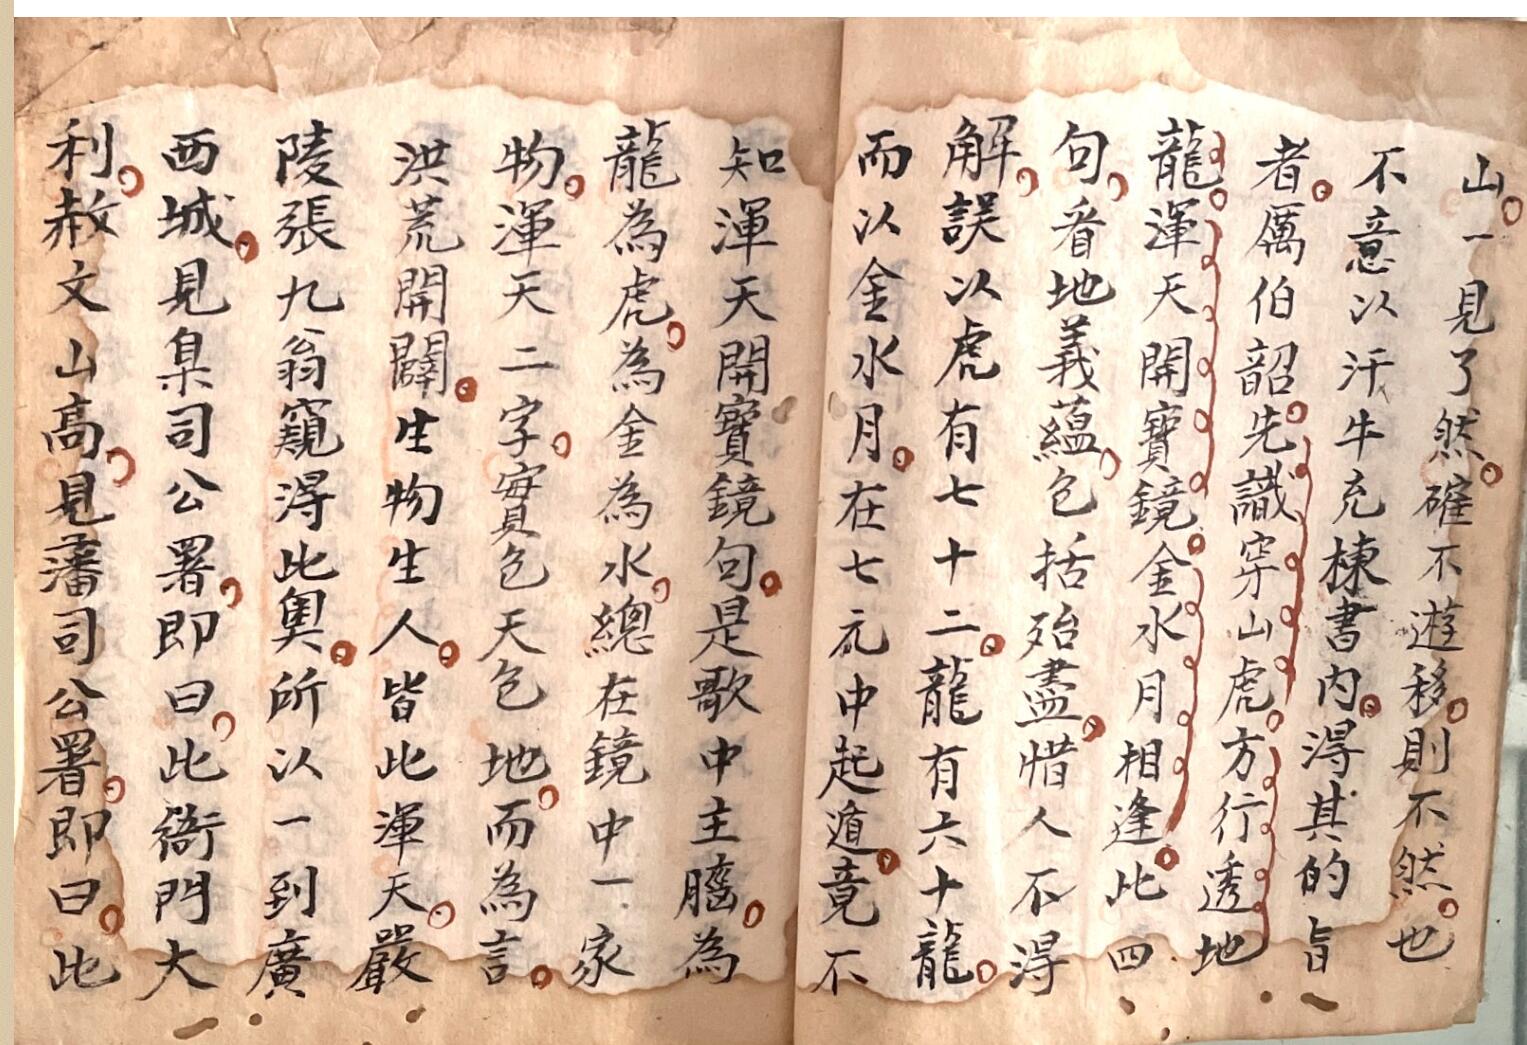 山一見了然確不遊移則不然也
不意以汗牛充棟書内得其的旨
者厲伯韶先識穿山虎方行透地
龍渾天開寶鏡金水月相逢此四
句看地義蘊包括殆盡惜人不得
解誤以虎有七十二龍有六十龍
而以金水月在七元中起遁竟不
知渾天開寶鏡句是歌中主腦為
龍為虎為金為水總在鏡中一家
物渾天二字實包天包地而為言
洪荒開闢生物生人皆此渾天嚴
陵張九翁窺得此奧所以一到廣
西城見臬司公署即曰此衙門大
利赦文山高見藩司公署即曰此